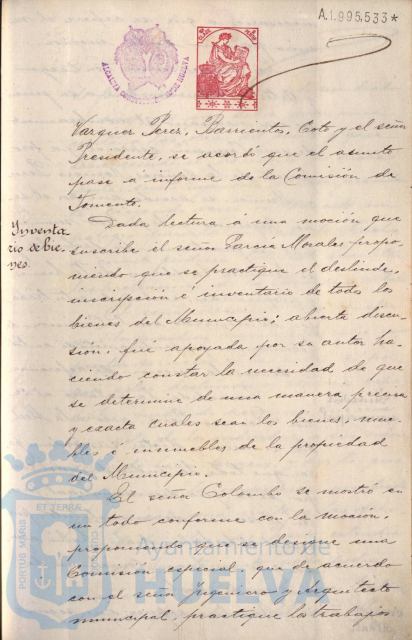 A.1.995.533*
ALCALDIA CONSTITUCIONAL DE HUELVA
Vazquez Perez, Barrientos, Coto y el señor
Presidente, se acordó que el asunto
pase á informe de la Comisión de
Fomento.
Inventa
rio de bie
nes.
Dada lectura á una moción que
suscribe el señor García Morales propo
niendo que se practique el deslinde,
inscripción é inventario de todos los
bienes del Municipio; abierta discu-
sión, fué apoyada por su autor ha-
ciendo constar la necesidad de que
se determine de una manera precisa
y exacta cuales sean los bienes, mue-
bles é inmuebles de la propiedad
del Municipio.
El señor Colombo se mostró en
un todo conforme con la moción,
proponiendo que se designe una
Comisión especial que de acuerdo
con el señor Ingeniero y Arquitecto
municipal, practique los trabajos
PORTUS MARIS
ET TERRÆ
CUSTODIA
Ayuntamiento de
HUELVA